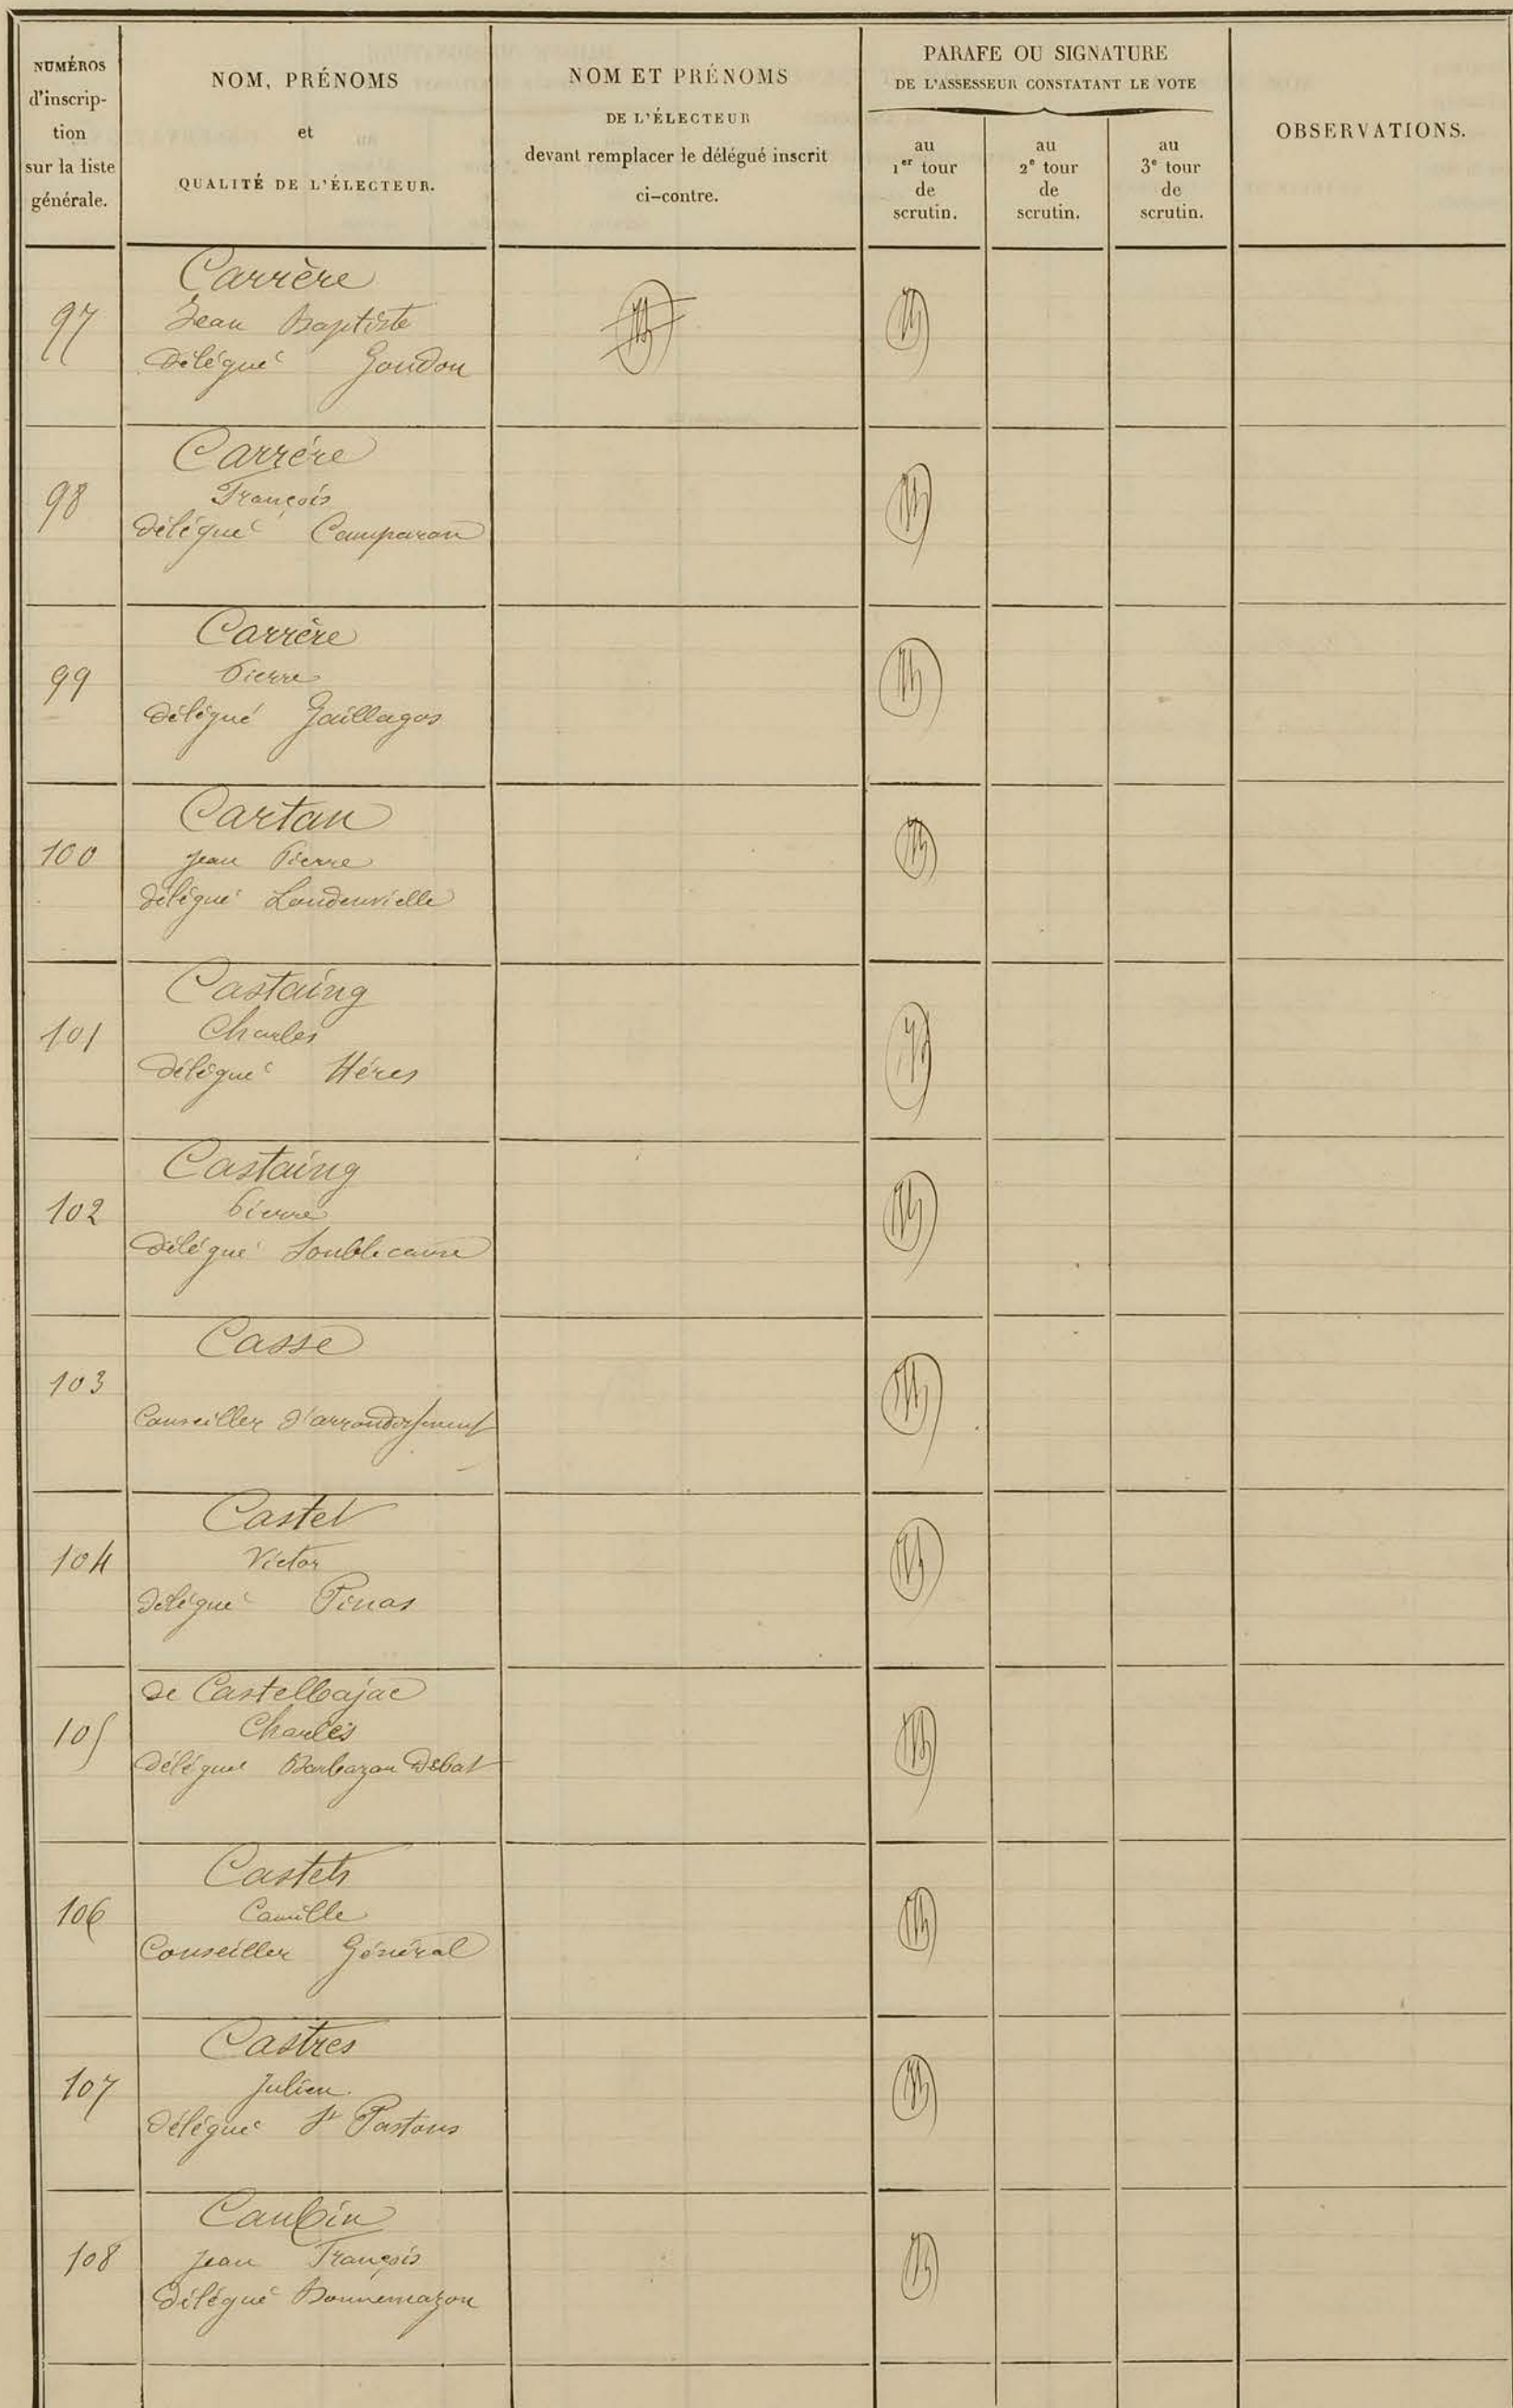 NUMÉROS
d'inscrip-
tion
sur la liste
générale.
NOM, PRÉNOMS
et
QUALITÉ DE L'ÉLECTEUR.
NOM ET PRÉNOMS
DE L'ÉLECTEUR
devant remplacer le délégué inscrit
ci-contre.
PARAFE OU SIGNATURE
DE L'ASSESSEUR CONSTATANT LE VOTE
au
1er tour
de
scrutin.
au
2e tour
de
scrutin.
au
3e tour
de
scrutin.
OBSERVATIONS.
Carrère
97 Jean Baptiste
Délégué Goudon
Carrère
98 François
Délégué Camparan
Carrère
99 Pierre
Délégué Gaillagos
Cartan
100 Jean Pierre
Délégué Loudenvielle
Castaing
101 Charles
Délégué Hères
Castaing
102 Pierre
Délégué Soublecause
Casse
103
Conseiller d'arrondissement
Castel
104 Victor
Délégué Pinas
de Castelbajac
105 Charles
Délégué Barbazan Debat
Castets
106 Camille
Conseiller Général
Castres
107 Julien.
Délégué St Pastous
Caubin
108 Jean François
Délégué Bonnemazon